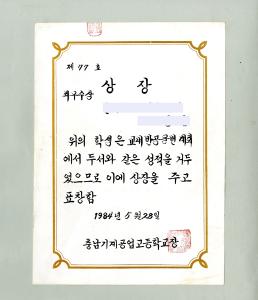 제 77 호
상 장
최우수상
위의 학생은 교내반공웅변대회
에서 두서와 같은 성적을 거두
었으므로 이에 상장을 주고
표창함
1984 년 5 월 28 일
충남기계공업고등학교장